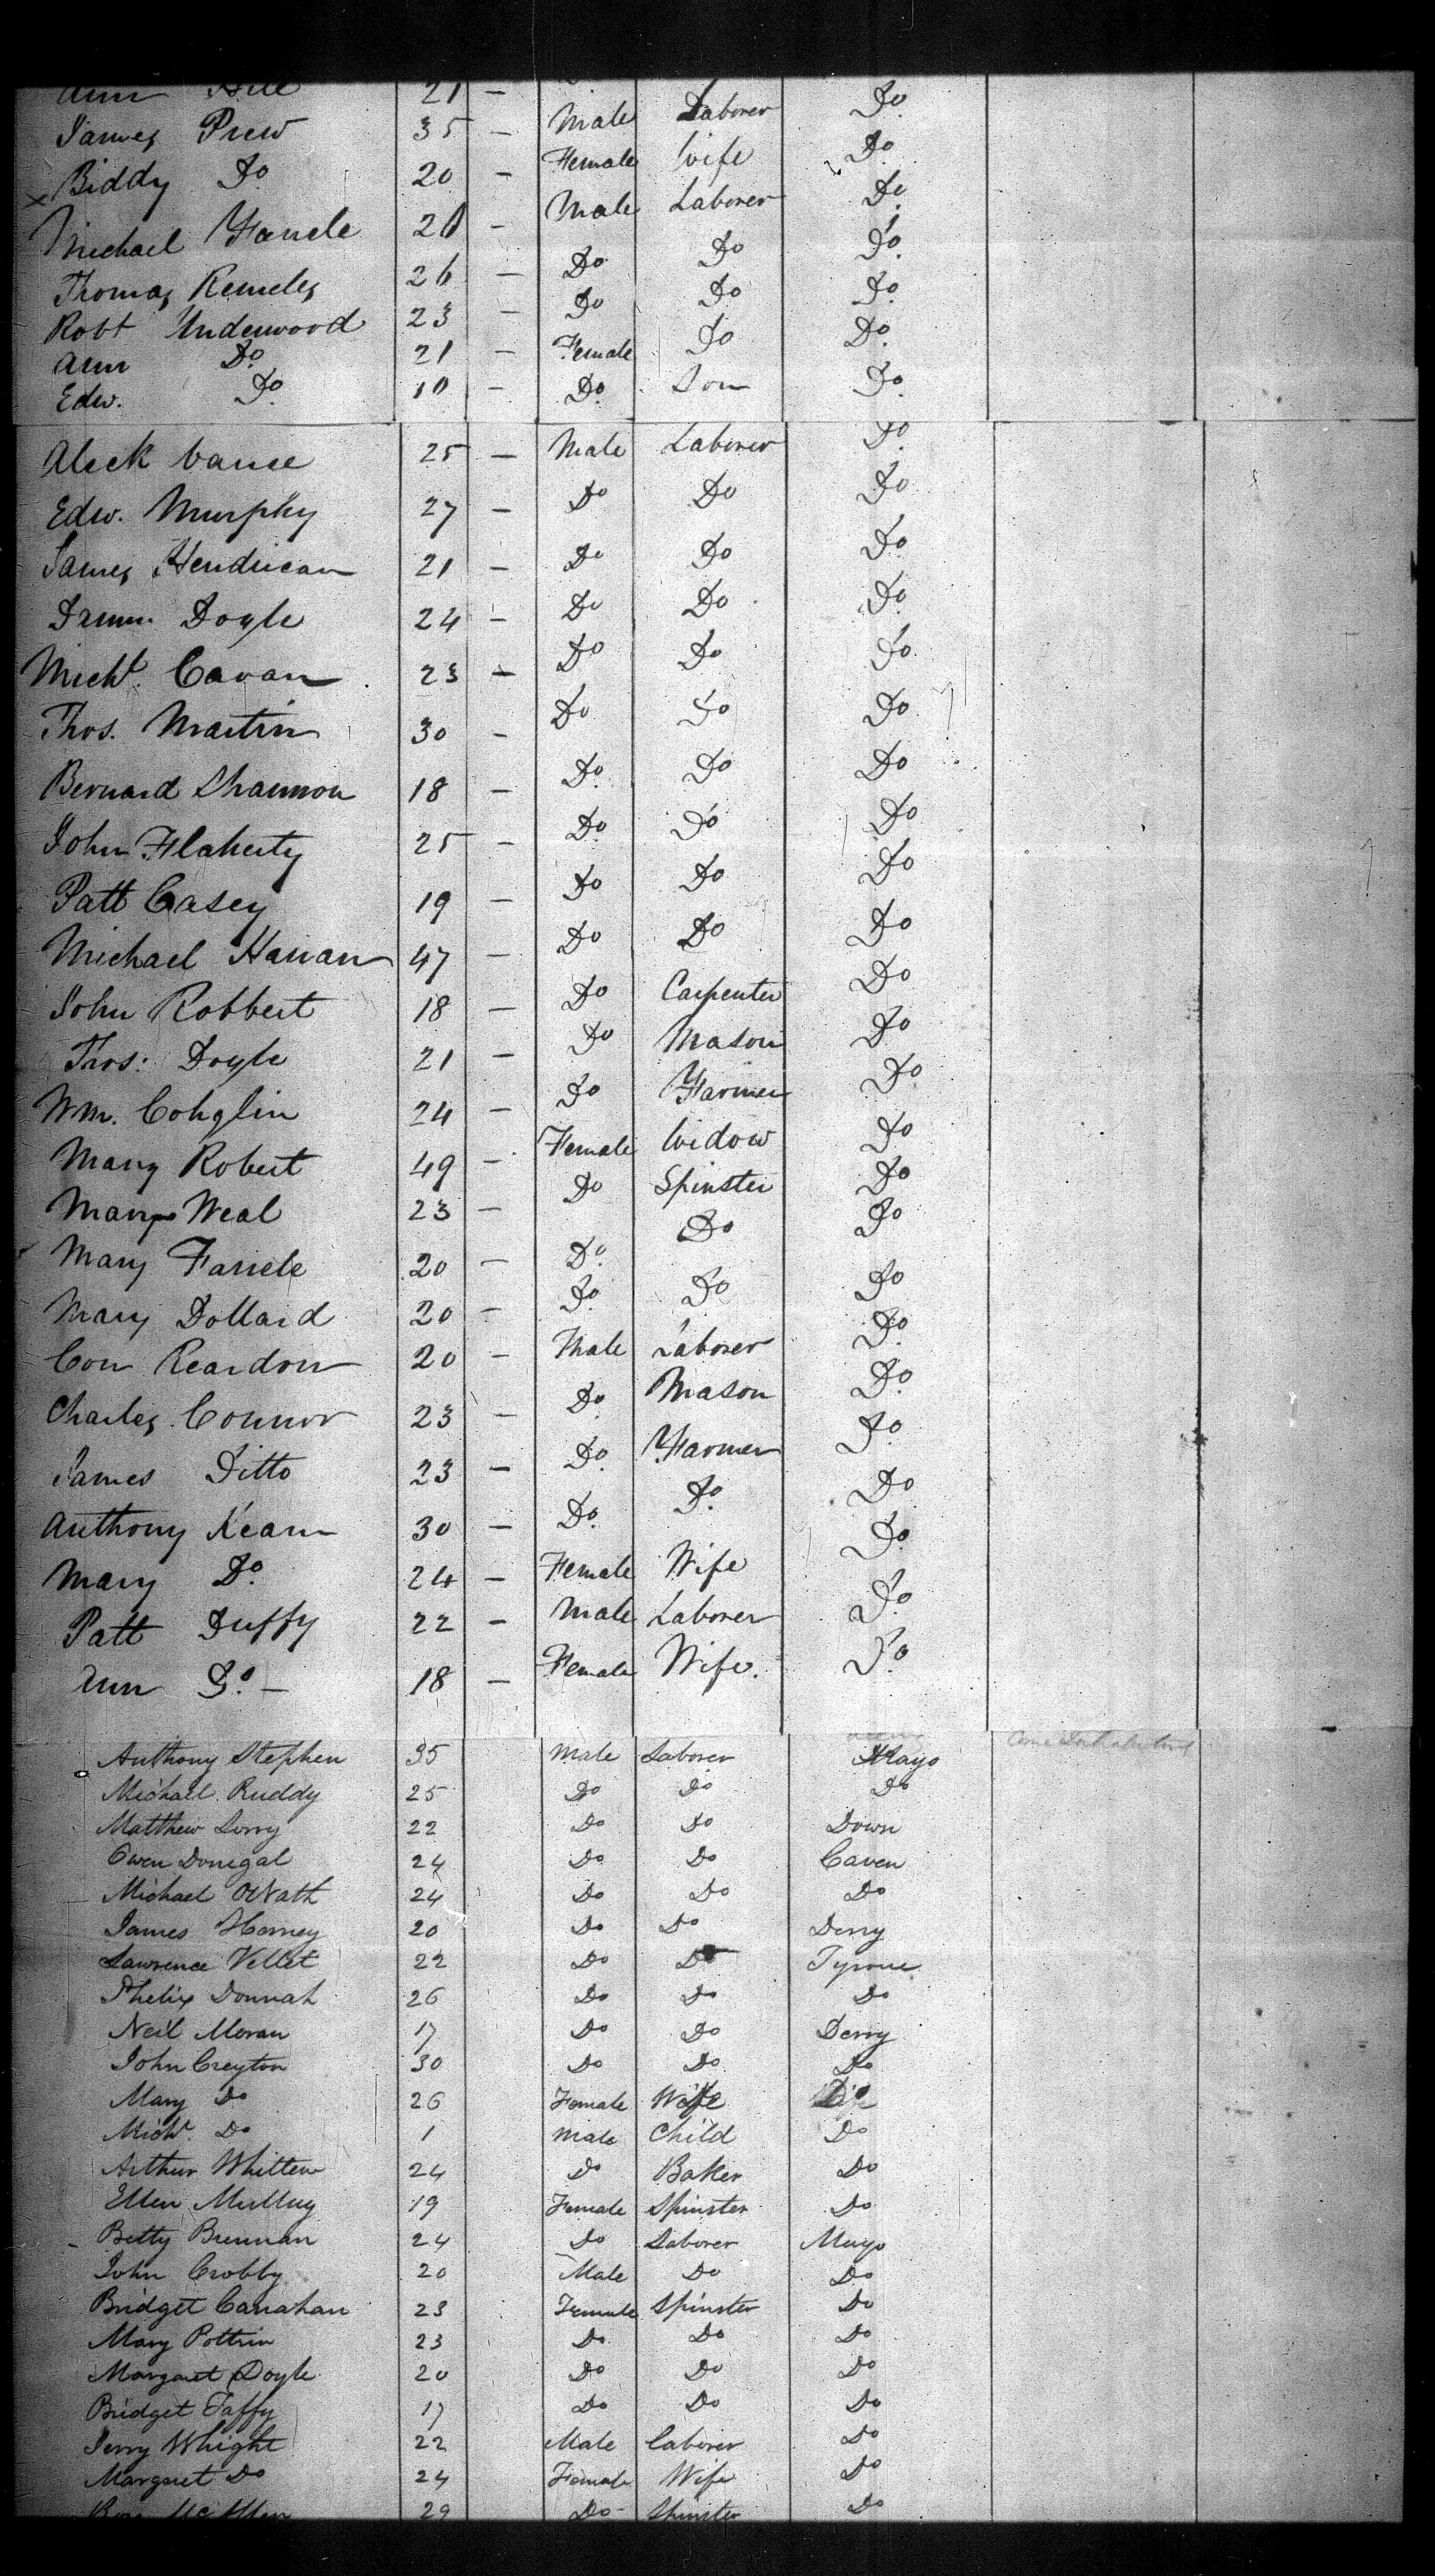 Ann Hill 21 —
James Prew 35 — Male Laborer Do
Biddy Do 20 — Female Wife Do
Michael Farrele 21 — Male Laborer Do
Thomas 26 — Do Do Do
Robt Underwood 23 — Do Do Do
Ann Do 21 — Female Do Do
Edw. Do 10 — Do Son Do
Aleck Vance 25 — Male Laborer Do
Edw. Murphy 27 — Do Do Do
James Hendrican 21 — Do Do Do
Doyle 24 — Do Do Do
Michl. Cavan 23 — Do Do Do
Thos. Martin 30 — Do Do Do
Bernard Shannon 18 — Do Do Do
John Flaherty 25 — Do Do Do
Patt Casey 19 — Do Do Do
Michael Hanan 47 — Do Do Do
John Robbert 18 — Do Carpenter Do
Thos: Doyle 21 — Do Mason Do
Wm. Cohglin 24 — Do Farmer Do
Mary Robert 49 — Female Widow Do
Mary Weal 23 — Do Spinster Do
Mary Farrele 20 — Do Do Do
Mary Dollard 20 — Do Do Do
Con Reardon 20 — Male Laborer Do
Charles Connor 23 — Do Mason Do
James Ditto 23 — Do Farmer Do
Anthony Kean 30 — Do Do Do
Mary Do 24 — Female Wife Do
Patt Duffy 22 — Male Laborer Do
Ann Do — 18 — Female Wife. Do
Anthony Stephen 35 Male Laborer Mayo
Michael Ruddy 25 Do Do Do
Matthew Lorry 22 Do Do Down
Owen Donegal 24 Do Do Caven
Michael 24 Do Do Do
James Harney 20 Do Do Derry
Lawrence Vellet 22 Do Do Tyrone
Phelix Donnah 26 Do Do Do
Neil Moran 17 Do Do Derry
John Creyton 30 Do Do Do
Mary Do 26 Female Wife Do
Michl. Do 1 Male Child Do
Arthur Whitten 24 Do Baker Do
Ellen Mulluy 19 Female Spinster Do
Betty Brennan 24 Do Laborer Mayo
John Crobby 20 Male Do Do
Bridget Canahan 23 Female Spinster Do
Mary Pottrin 23 Do Do Do
Margaret Doyle 20 Do Do Do
Bridget Taffy 17 Do Do Do
Jerry Whight 22 Male Laborer Do
Margaret Do 24 Female Wife Do
29 Do Spinster Do